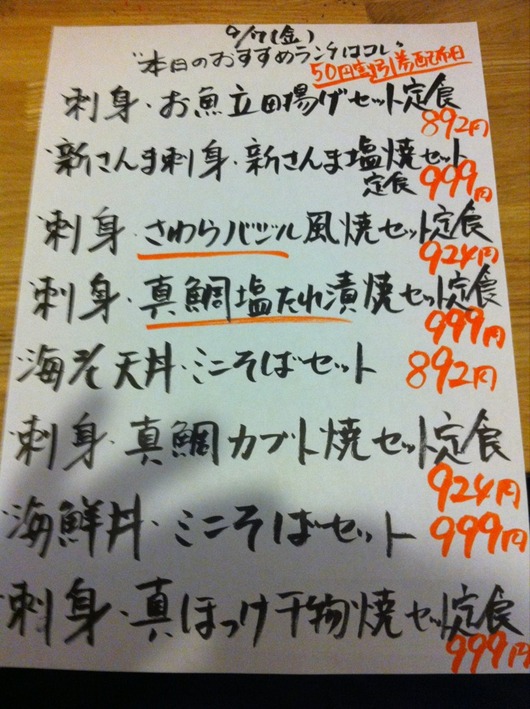 9/7(金)
"本日のおすすめランチはコレ"
50円割引券配布日
・刺身・お魚立田揚げセット定食
892円
・新さんま刺身・新さんま塩焼セット
定食 999円
・刺身・さわらバジル風焼セット定食
924円
・刺身・真鯛塩たれ漬焼セット定食
999円
・海老天丼・ミニそばセット 892円
・刺身・真鯛カブト焼セット定食
924円
・海鮮丼・ミニそばセット 999円
・刺身・真ほっけ干物焼セット定食
999円